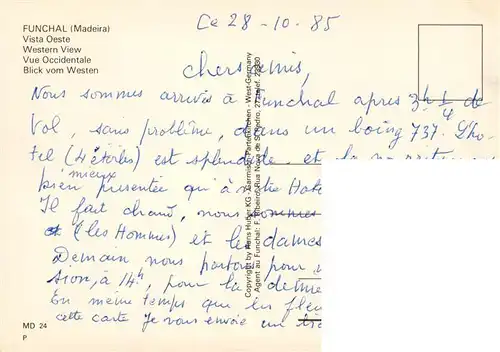 FUNCHAL (Madeira)
Vista Oeste
Western View
Vue Occidentale
Blick vom Westen
Ce 28-10-85
chers amis,
Nous sommes arrivés à Funchal apres 3h 1/4 de
Vol, sans problème, dans un boing 737. L'ho-
tel (4 étoiles) est splendide et la
bien mieux présentée qu'à notre Hote
Il fait chaud, nous sommes
et (les Hommes) et les dames
Demain nous partons pour
sion, à 14h, pour la
En meme temps que les fle
cette carte Je vous envoie un
Copyright by Hans Huber KG - Garmisch-Partenkirchen - West-Germany
Agent au Funchal: F. Ribeiro, Rua Nova de S. Pedro, 27, telef.
MD 24
P